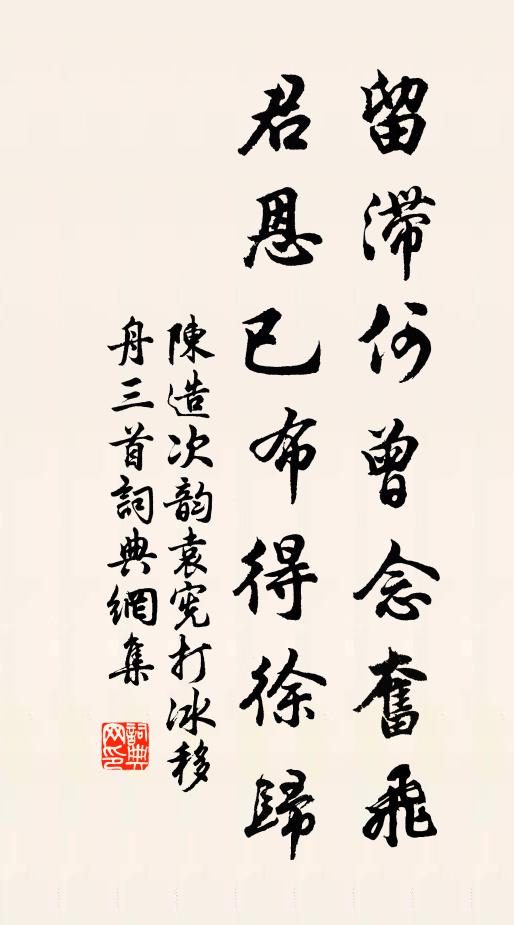 留滯何曾念奮飛
君恩已布得徐歸
陳造次韵袁宪打冰移
舟三首詞典網集
詞典网印